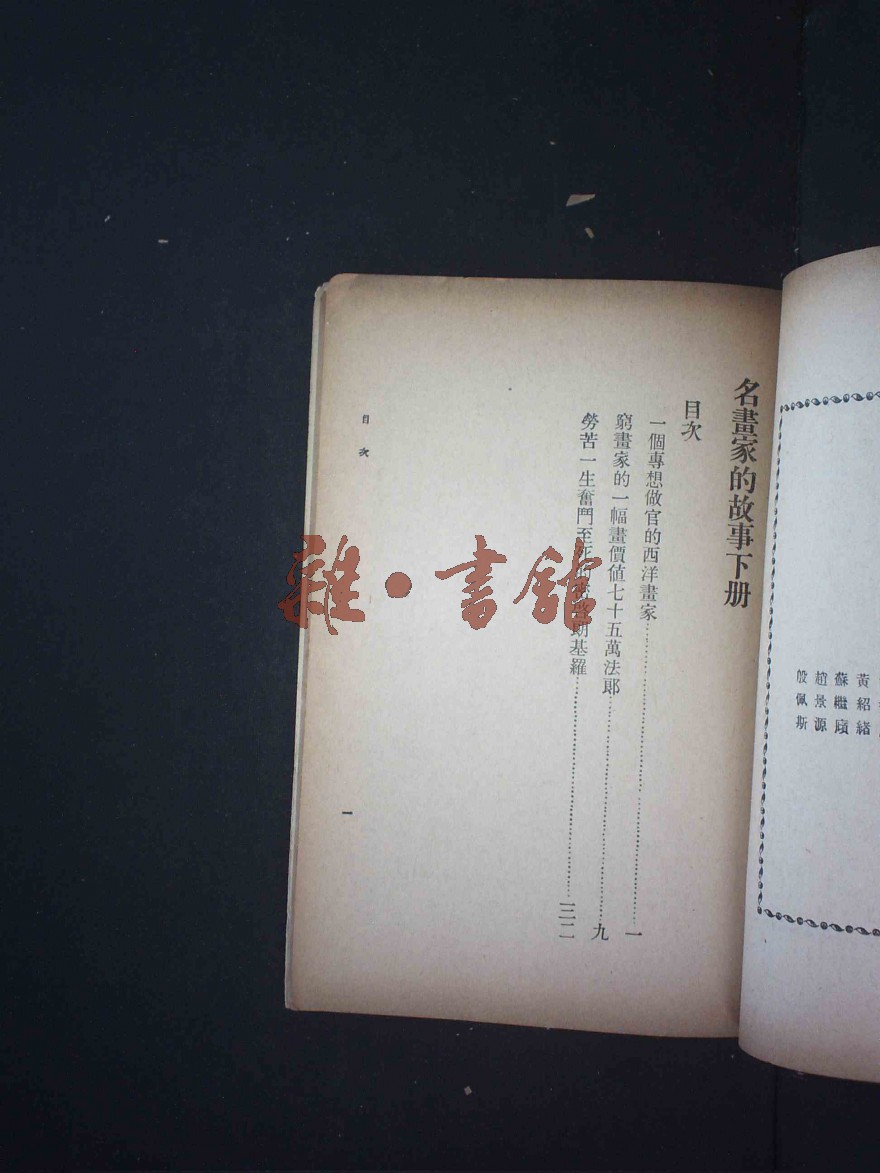 名畫家的故事下册
目次
一個專想做官的西洋畫家 一
窮畫家的一幅畫價值七十五萬法郎 九
勞苦一生奮鬥至死的 期基羅 三二
目次
一
黃紹緒
蘇繼廎
趙景源
殷佩斯
雜·書館